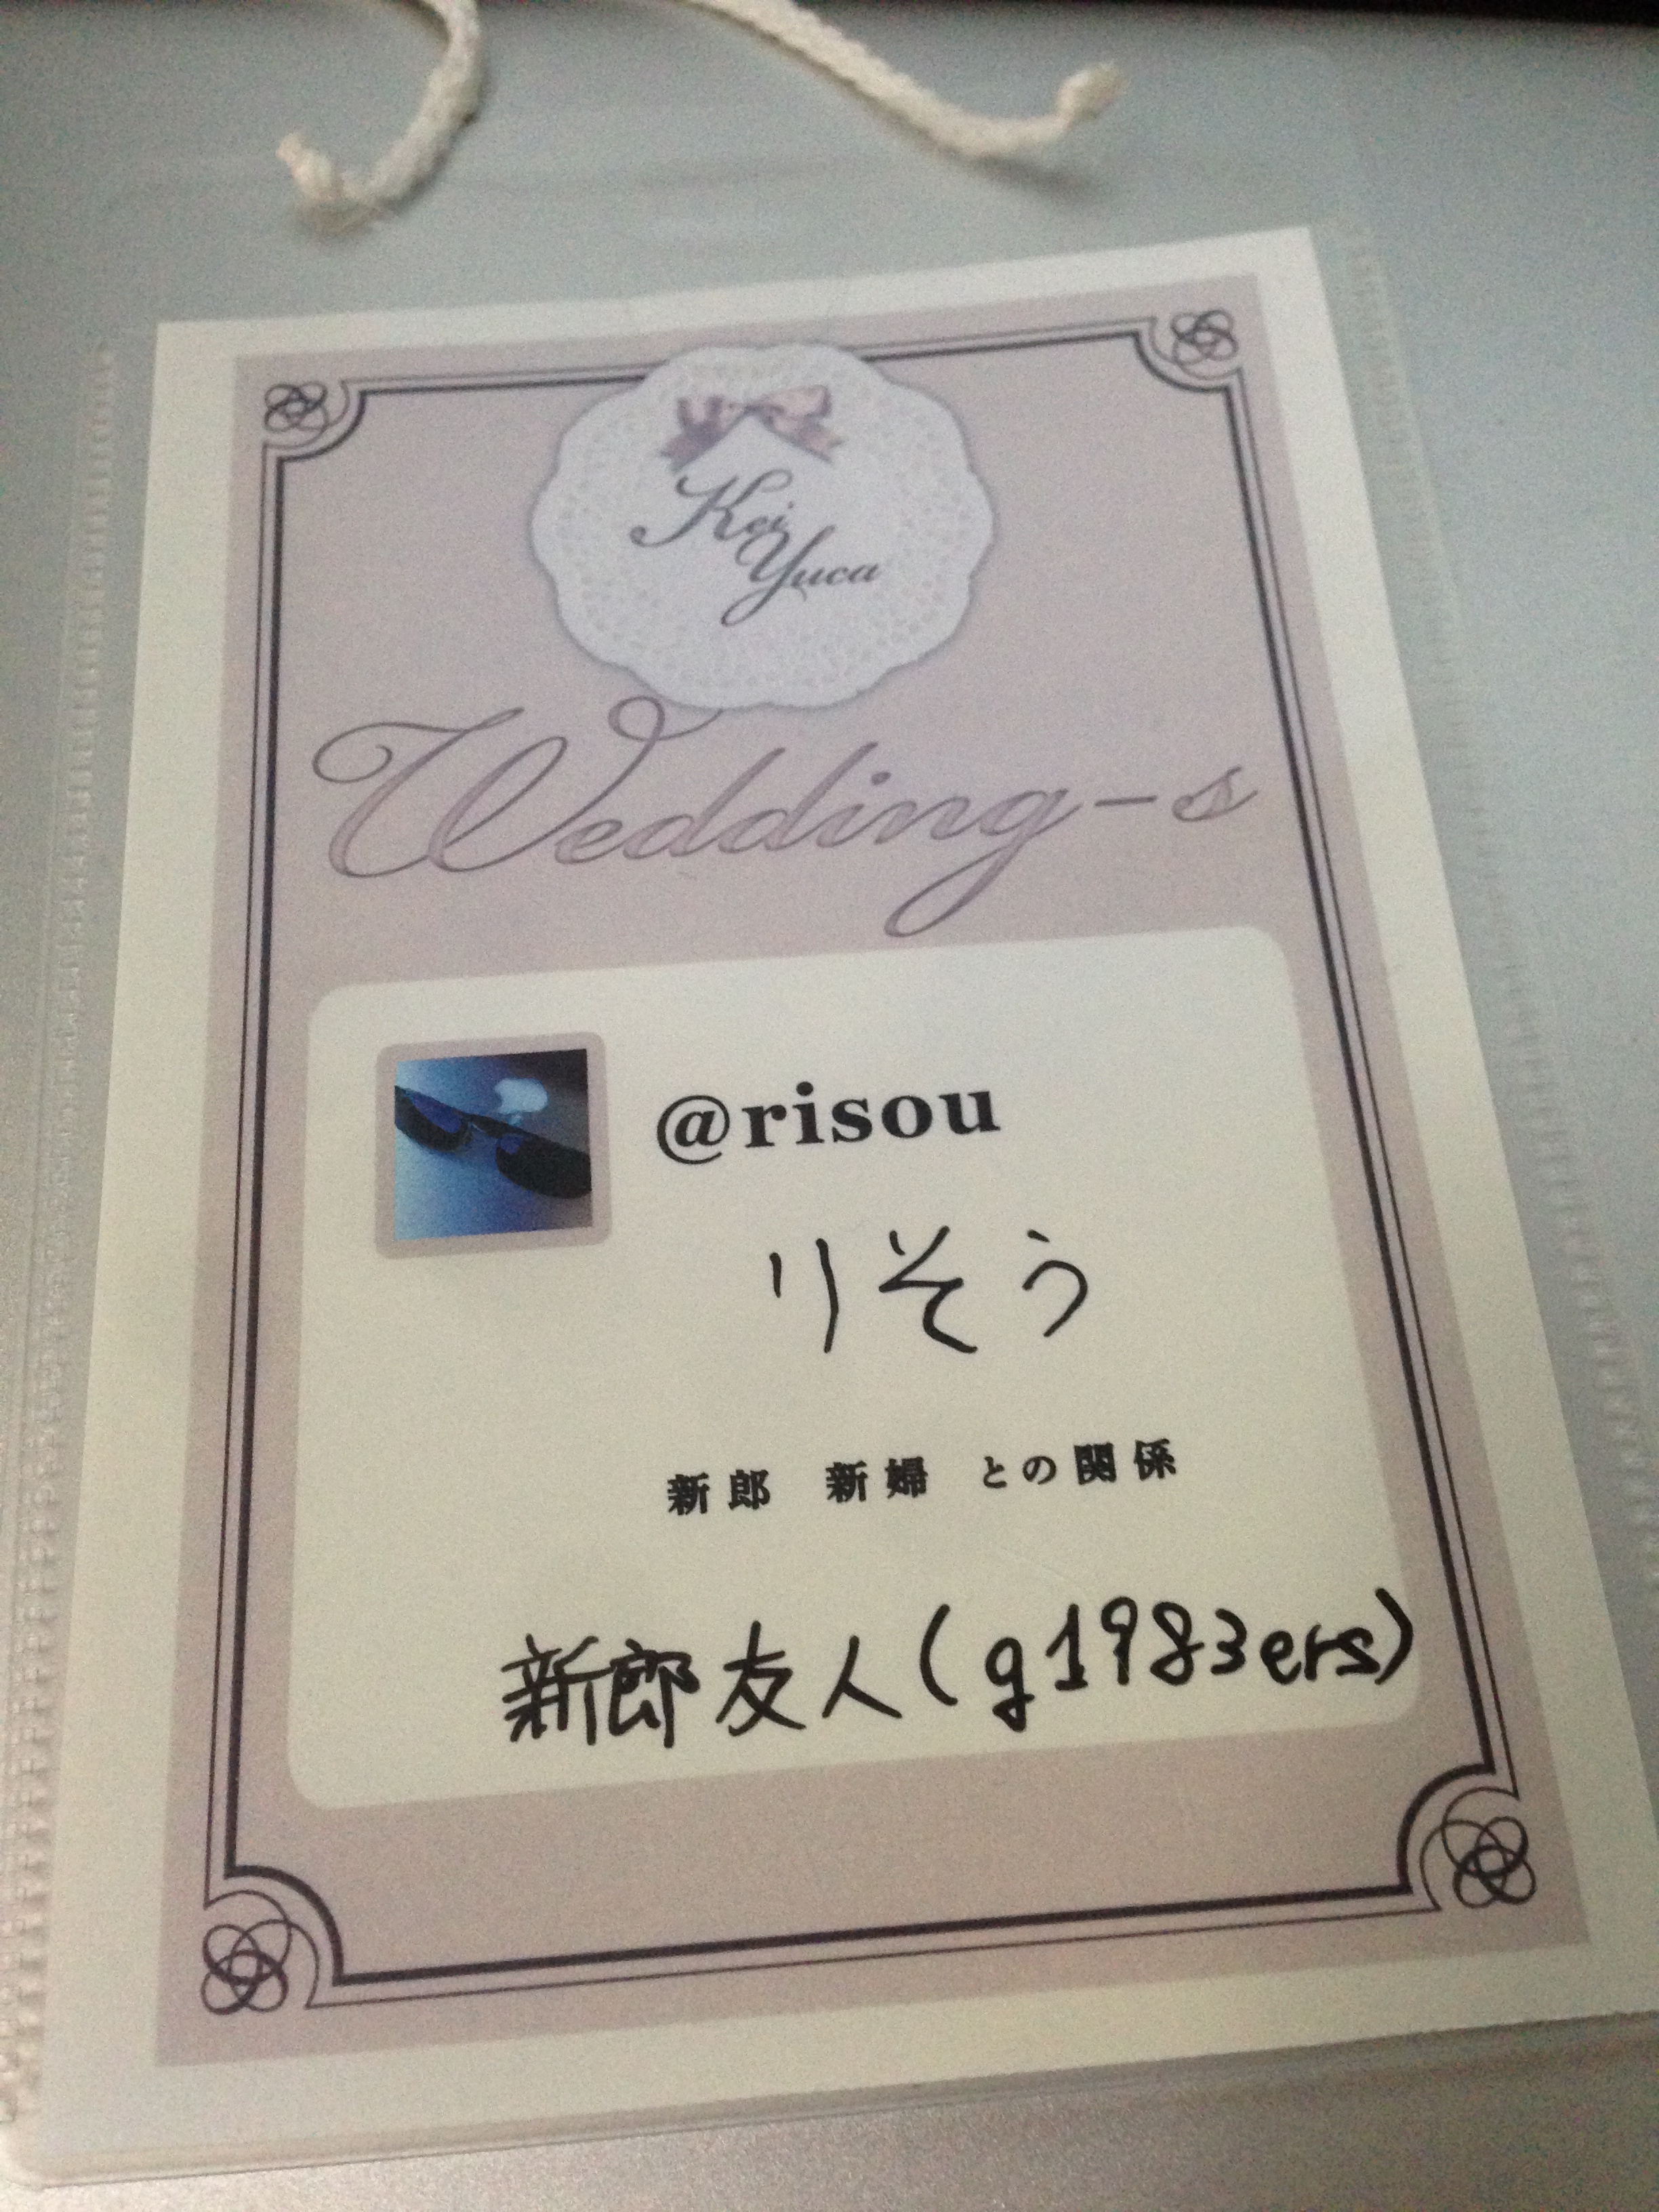 Kei
Yuca
Wedding-s
@risou
りそう
新郎 新婦 との関係
新郎友人(g1983ers)